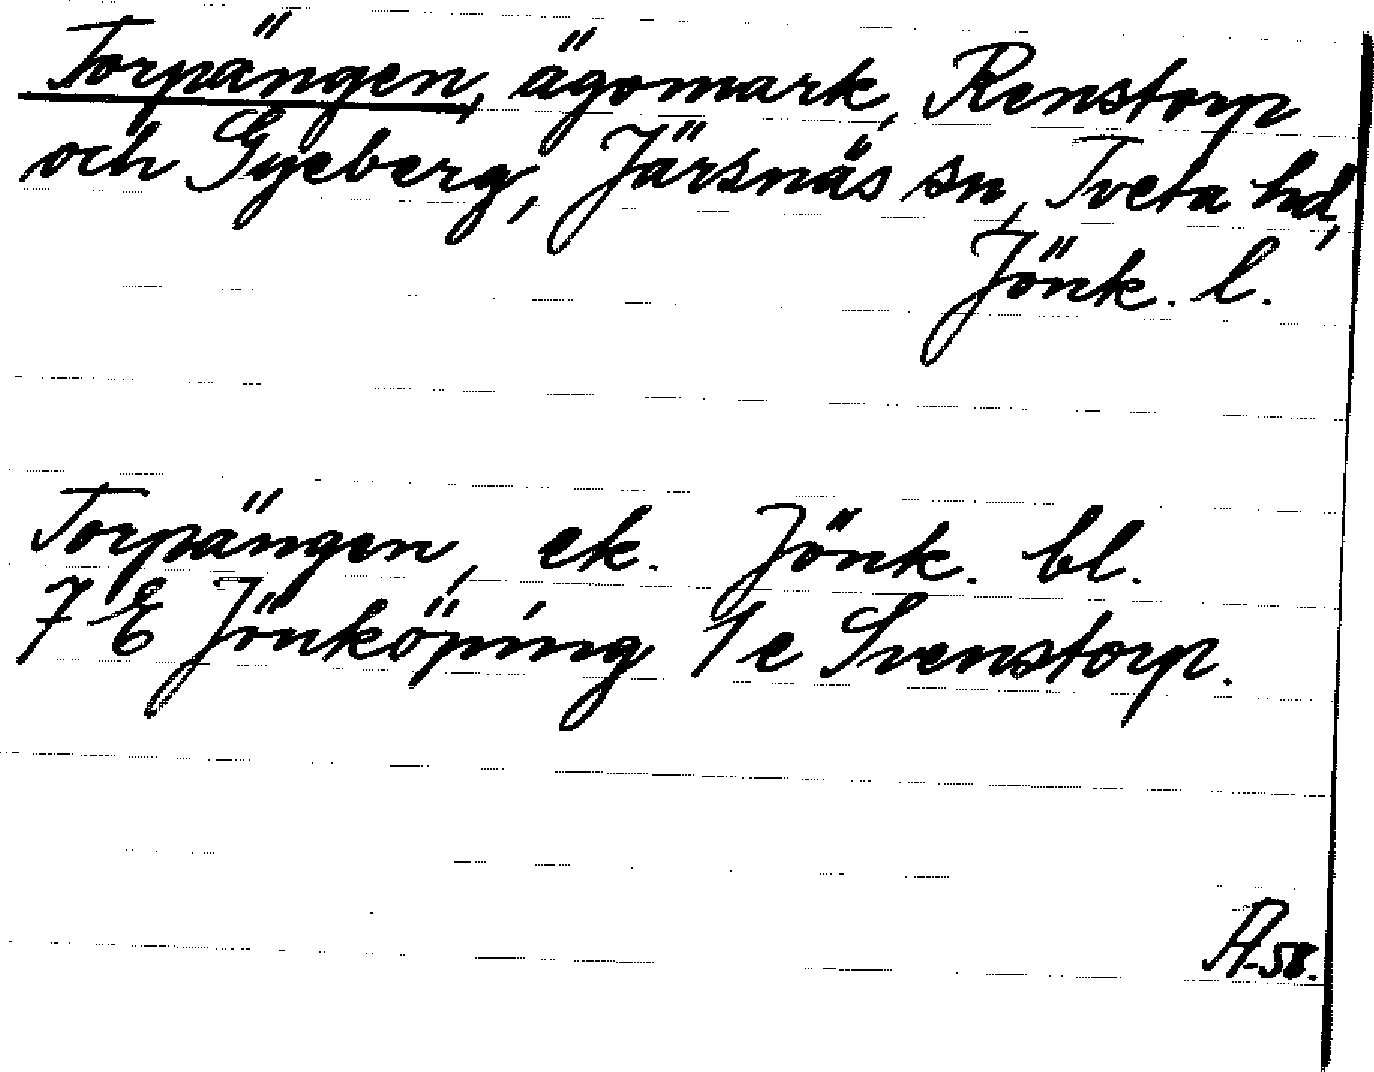 Torpängen, ägomark, Renstorp
och Gyeberg, Järsnäs sn, Tveta hd,
Jönk. l.
Torpängen, ek. Jönk. bl.
7 E Jönköping 1 e Svenstorp.